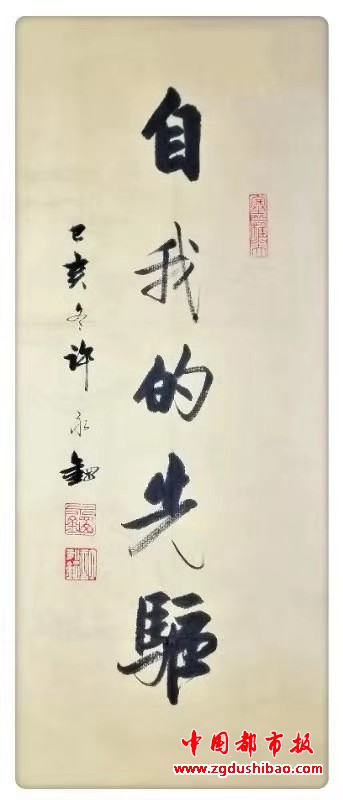 自我的先驅
己亥冬许永
中国都市报
www.zgdushibao.com